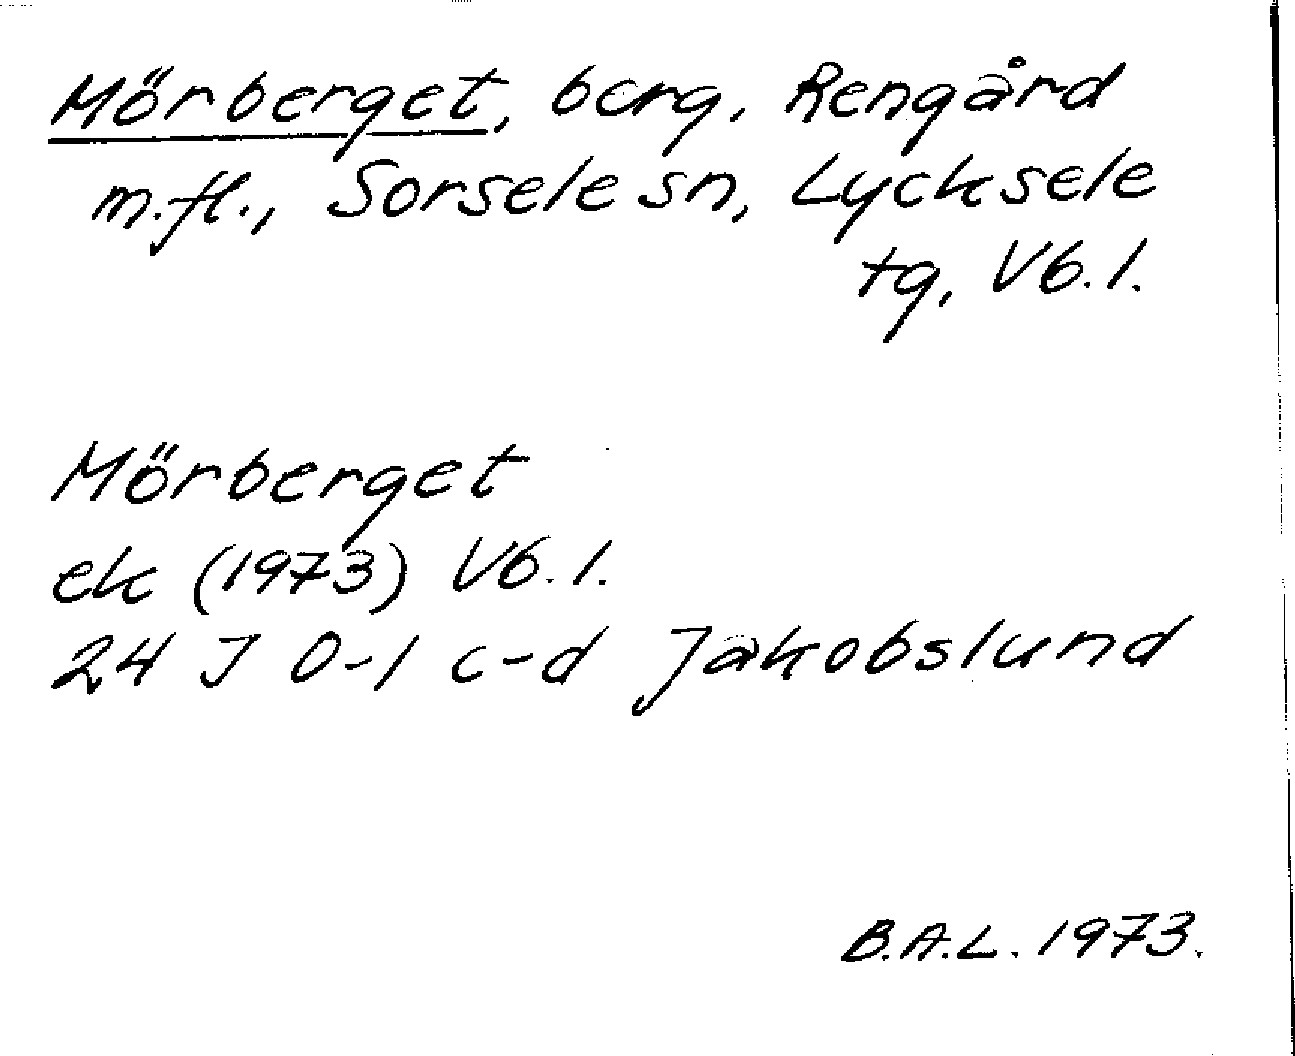 Mörberget, berg, Rengård
m.fl., Sorsele sn, Lycksele
tg, Vb. l.
Mörberget
ek (1973) Vb. l.
24 J 0-1 c-d Jakobslund
B.A.L. 1973.